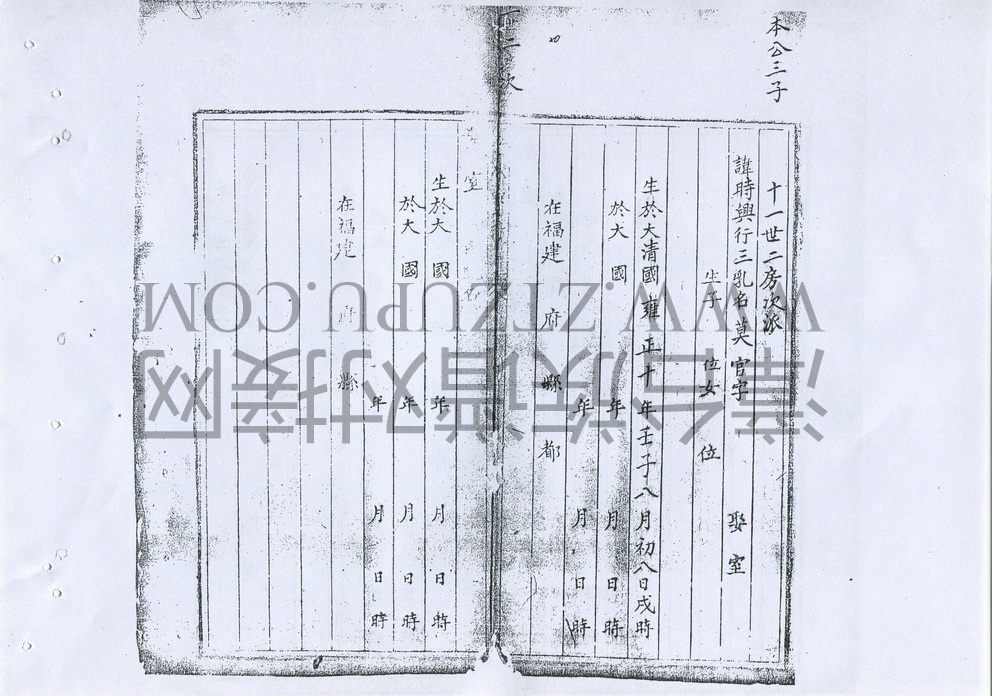 本公三子
十一世二房次派
諱時興行三乳名莫官字 娶 室
生子 位女 位
生於大清國雍正十年壬子八月初八日戌時
於大 國 年 月 日 時
年 月 日 時
在福建 府 縣 都
二次
室
生於大 國 年 月 日 時
於大 國 年 月 日 時
年 月 日 時
在福建 府 縣
WWW.ZTZUPU.COM
漳台族谱对接网